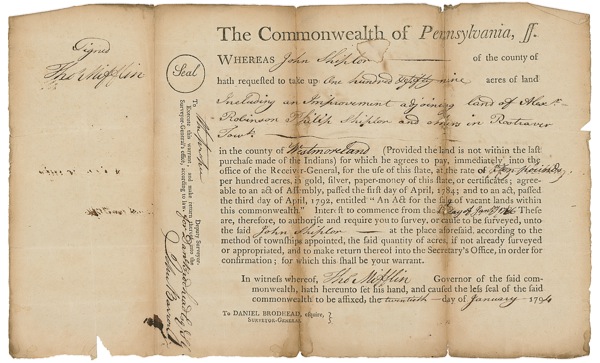 Signed
Tho Mifflin
Seal
To
Execute this warrant, and make return thereof into the
Surveyor-General's office, according to law
Deputy Surveyor.
John Barron
The Commonwealth of Pennsylvania, ſſ.
WHEREAS John Shiplor of the county of
hath requested to take up One hundred & fifty nine acres of land
Including an Improvement adjoining land of Alexr
Robinson Philip Shiplor and others in Rostraver
Town
in the county of Westmoreland (Provided the land is not within the last
purchase made of the Indians) for which he agrees to pay, immediately, into the
office of the Receiver-General, for the use of this state, at the rate of
per hundred acres, in gold, silver, paper-money of this state, or certificates; agree-
able to an act of Assembly, passed the first day of April, 1784; and to an act, passed
the third day of April, 1792, entitled "An Act for the sale of vacant lands within
this commonwealth." Interest to commence from the These
are, therefore, to authorise and require you to survey, or cause to be surveyed, unto
the said John Shiplor at the place aforesaid, according to the
method of townships appointed, the said quantity of acres, if not already surveyed
or appropriated, and to make return thereof into the Secretary's Office, in order for
confirmation; for which this shall be your warrant.
In witness whereof, Tho Mifflin Governor of the said com-
monwealth, hath hereunto set his hand, and caused the less seal of the said
commonwealth to be affixed, the twentieth day of January 1794
To DANIEL BRODHEAD, esquire,
SURVEYOR-GENERAL